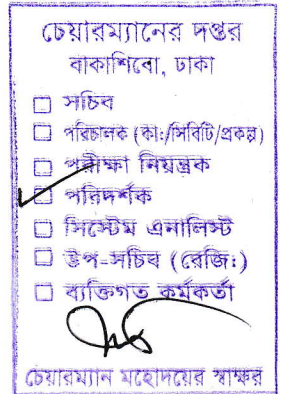 চেয়ারম্যানের দপ্তর
বাকাশিবো, ঢাকা
সচিব
পরিচালক (কাঃ/সিবিটি/প্রকল্প)
পরীক্ষা নিয়ন্ত্রক
পরিদর্শক
সিস্টেম এনালিস্ট
উপ-সচিব (রেজিঃ)
ব্যক্তিগত কর্মকর্তা
চেয়ারম্যান মহোদয়ের স্বাক্ষর